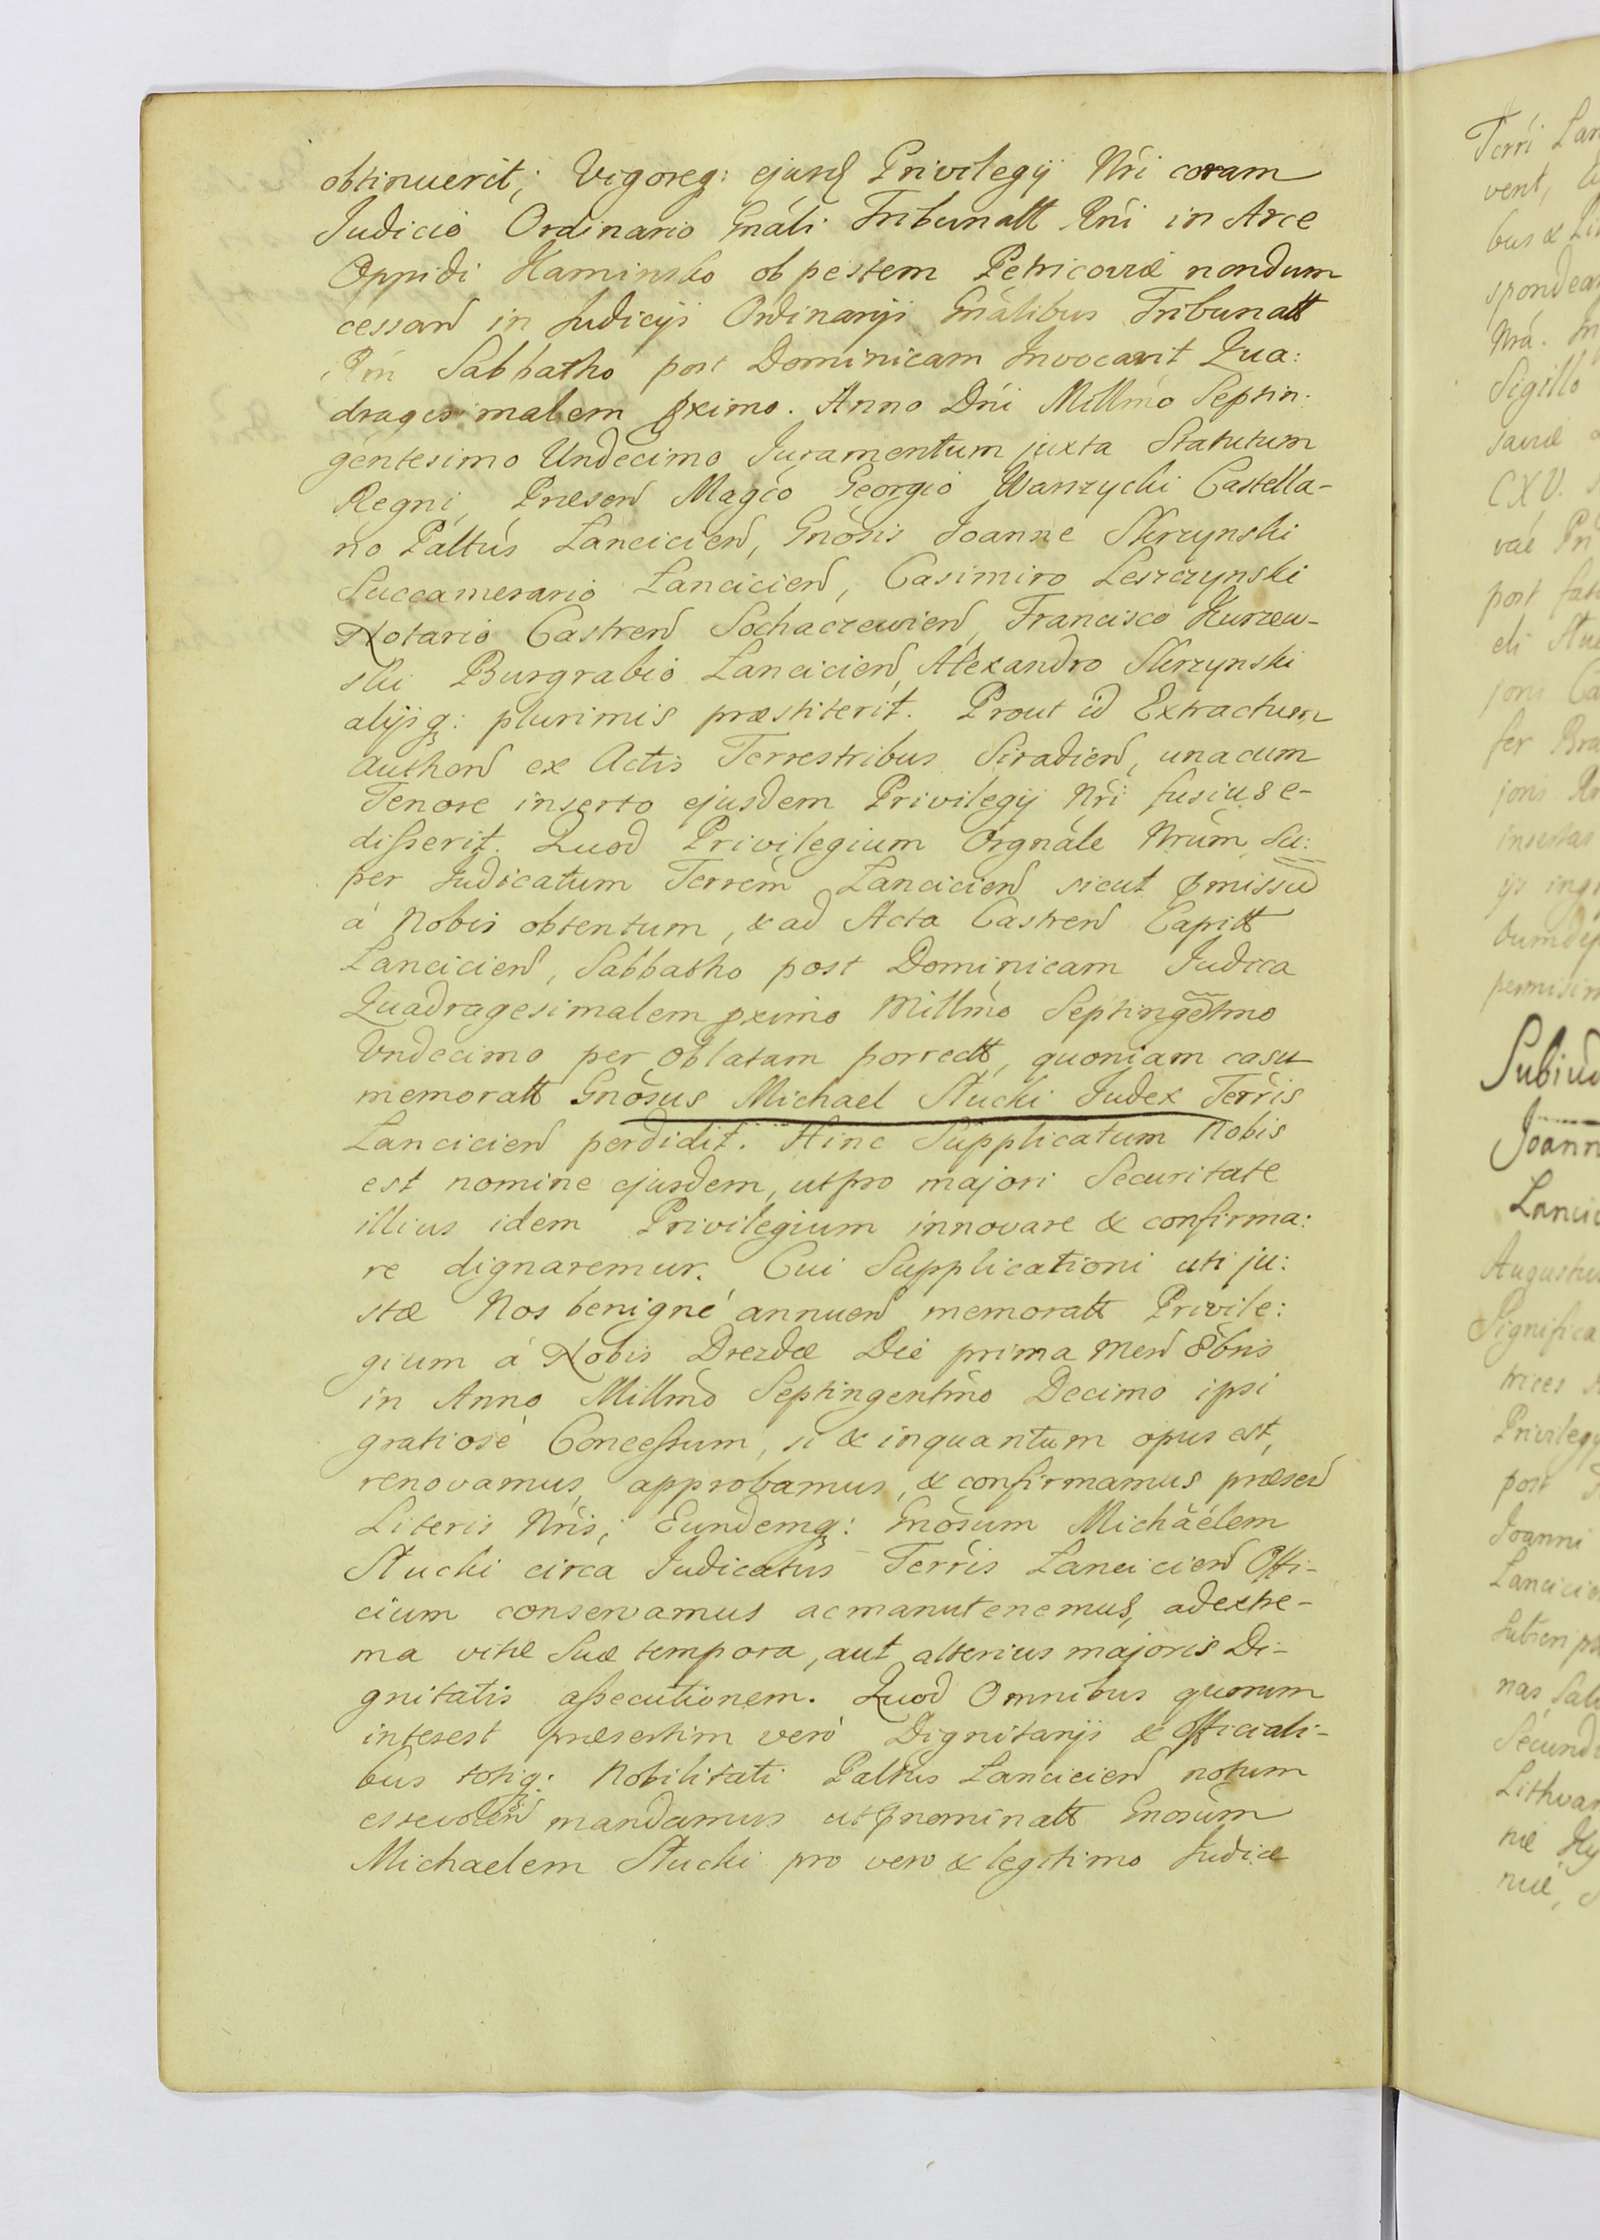 obtinuerit; Vigoreq: ejusd Privilegij Nri coram
Judicio Ordinario Gnáli Tribunatt Rni in Arce
Oppidi Kaminsko ob pestem Petricoviæ nondum
cessand in Judicijs Ordinarijs Gnálibus Tribunatt
Rni Sabbatho post Dominicam Invocavit Qua:
dragesimalem pximo. Anno Dni Millmo Septin:
gentesimo Undecimo Juramentum juxta Statutum
Regni, Præsend Magco Georgio Wanzychi Castella-
no Paltus Lancicien, Gnosis Joanne Skrzynski
Succamerario Lancicien, Casimiro Leszczynski
Notario Castren Sochaczewien, Francisco Kurzew-
ski Burgrabio Lancicien, Alexandro Skrzynski
alijsq: plurimis præstiterit. Prout id Extractum
authen ex Actis Terrestribus Siradien, unacum
Tenore inserto ejusdem Privilegij Nri fusius e-
disserit. Quod Privilegium Orgnále Nrum Su:
per Judicatum Terrem Lancicien sicut pmissu
á Nobis obtentum, & ad Acta Castren Capitt
Lancicien, Sabbatho post Dominicam Judica
Quadragesimalem pximo Millmo Septingetmo
Undecimo per Oblatam porrectt, quoniam casu
memoratt Gnosus Michael Stucki Judex Terris
Lancicien perdidit. Hinc Supplicatum Nobis
est nomine ejusdem, ut pro majori Securitate
illius idem Privilegium innovare & confirma:
re dignaremur. Cui Supplicationi uti ju:
stæ Nos benigné annuen memoratt Privile:
gium á Nobis Drezdæ Die prima Men 8bris
in Anno Millmo Septingentmo Decimo ipsi
gratiosé Concessum, si & inquantum opus est,
renovamus, approbamus, & confirmamus præsen
Literis Nris; Eundemq: Gnosum Michäélem
Stucki circa Judicatus Terris Lancicien Offi-
cium conservamus ac manutenemus, ad extre-
ma vitæ Suæ tempora, aut alterius majoris Di-
gnitatis assecutionem. Quod Omnibus quorum
interest præsertim veró Dignitarijs & Officiali-
bus totiq: Nobilitati Paltus Lancicien notum
mandamus ut pnominatt Gnosum
Michaelem Stucki pro vero & legitimo Judice
Terri Lan
vent,
bus & Li
spondea
Nrá.
Sigillo
CXV.
post
fer Bra
insertas
permisim
Subiud
Joann
Lancic
Augustus
Significa
trices
Privilegij
post
Joanni
Lancicie
nas, Sal
Secundu
Lithvan